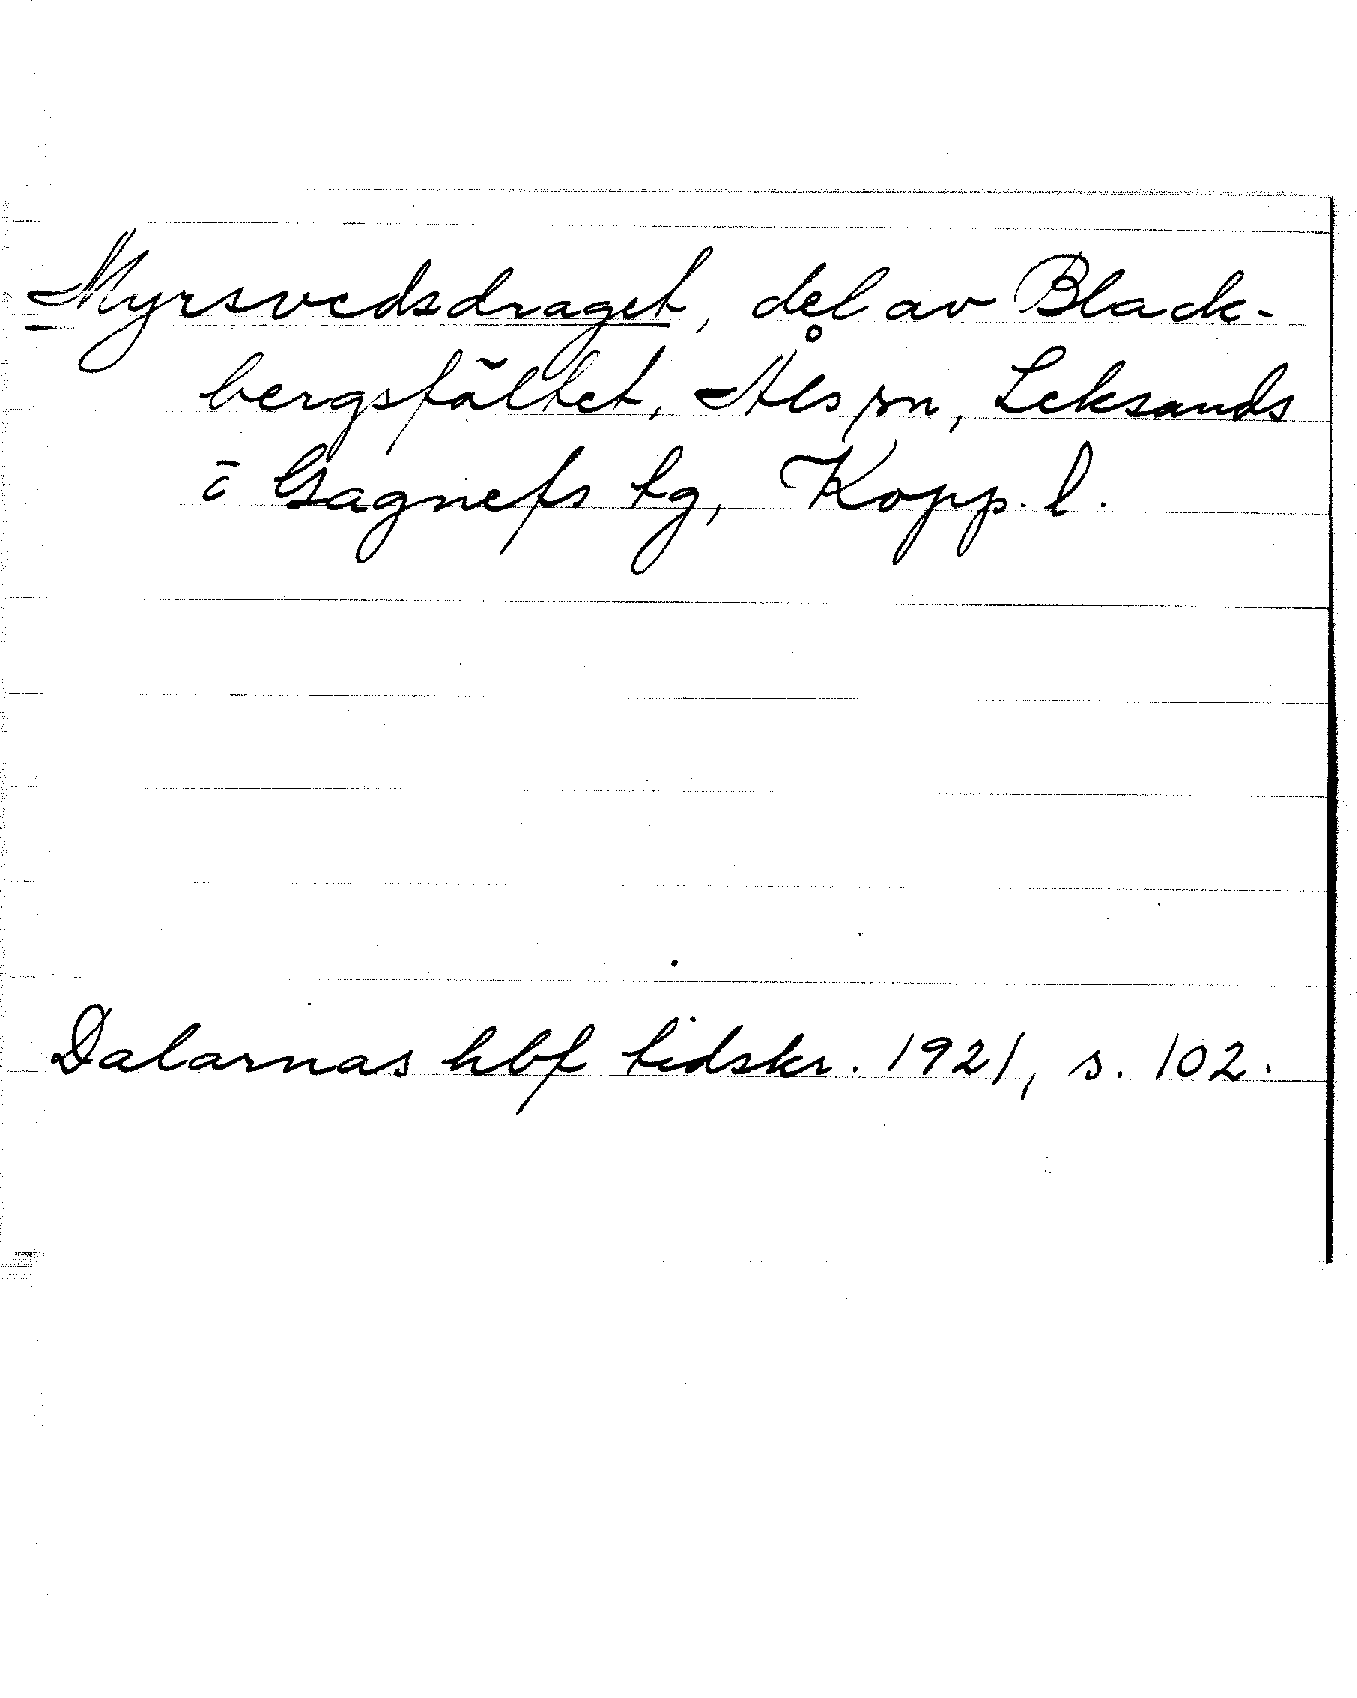 Myrsvedsdraget, del av Black-
bergsfältet, Åls sn, Leksands
o Gagnefs tg, Kopp. l.
Dalarnas hbf tidskr. 1921, s. 102.